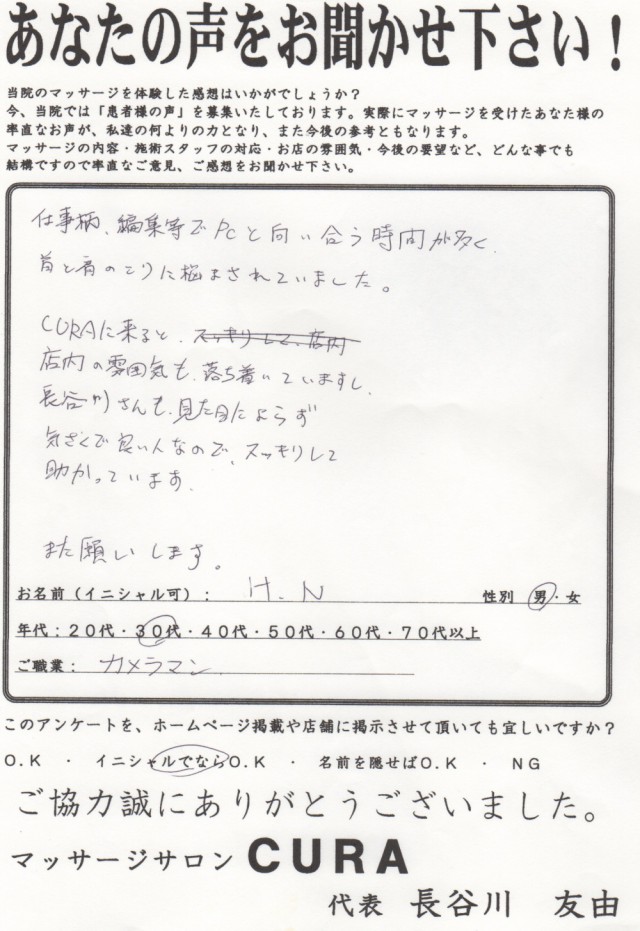 あなたの声をお聞かせ下さい！
当院のマッサージを体験した感想はいかがでしょうか？
今、当院では「患者様の声」を募集いたしております。実際にマッサージを受けたあなた様の
率直なお声が、私達の何よりの力となり、また今後の参考ともなります。
マッサージの内容・施術スタッフの対応・お店の雰囲気・今後の要望など、どんな事でも
結構ですので率直なご意見、ご感想をお聞かせ下さい。
仕事柄、編集等でPCと向い合う時間が多く、
首と肩のこりに悩まされていました。
CURAに来ると、スッキリして、店内
店内の雰囲気も、落ち着いていますし、
長谷川さんも、見た目によらず
気さくで良い人なので、スッキリして
助かっています。
また願いします。
お名前（イニシャル可）： H.N 性別 男・女
年代：20代・30代・40代・50代・60代・70代以上
ご職業： カメラマン
このアンケートを、ホームページ掲載や店舗に掲示させて頂いても宜しいですか？
O.K ・ イニシャルでならO.K ・ 名前を隠せばO.K ・ NG
ご協力誠にありがとうございました。
マッサージサロン CURA
代表 長谷川 友由